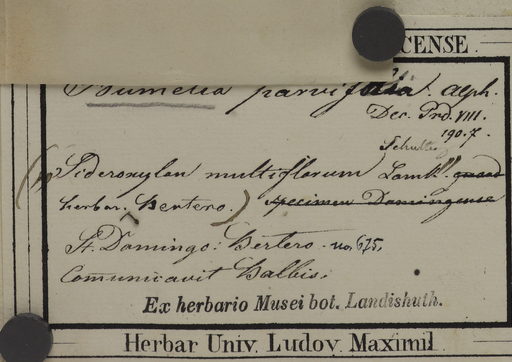 CENSE.
Bumelia parvifolia. Alph.
Dec. Prd. VIII.
190. 7.
Schultes
Sideroxylon multiflorum Lamk. quoad
herbar. Bertero.) specimen Domingense
St. Domingo: Bertero. no. 675,
Comunicavit Balbis;
Ex herbario Musei bot. Landishuth.
Herbar Univ. Ludov. Maximil